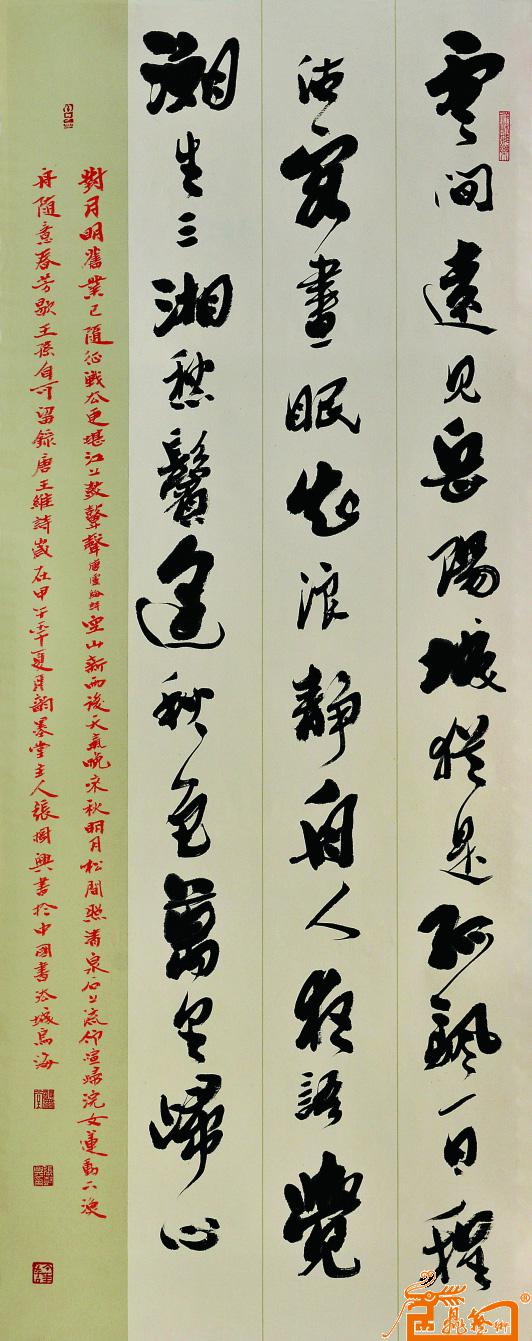 雲間遠見岳陽城猶是孤帆一日程
沽客晝眠知浪靜舟人夜語覺
潮生三湘愁鬢逢秋色萬里歸心
對月明舊業已隨征戰盡更堪江上鼓鼙聲唐盧綸詩空山新雨後天氣晚來秋明月松間照清泉石上流竹喧歸浣女蓮動下漁
舟隨意春芳歇王孫自可留錄唐王維詩歲在甲午年夏月韵墨堂主人張國興書於中國書法城烏海